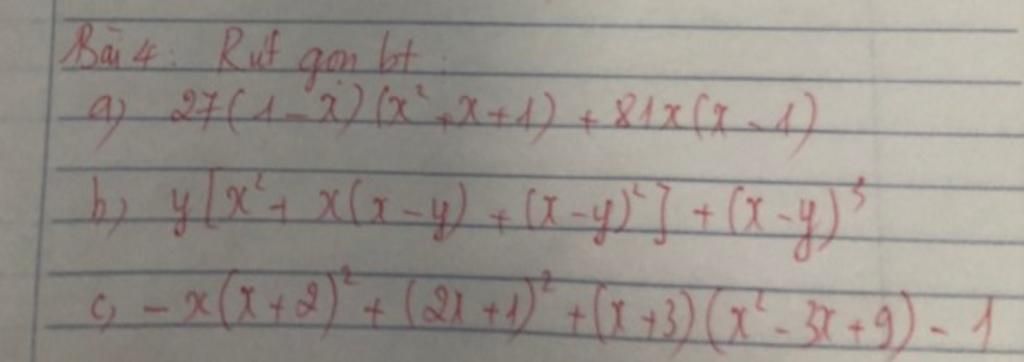 Bài 4: Rút gọn bt:
a) 27(1 - x)(x² + x + 1) + 81x(x - 1)
b) y[x² + x(x - y) + (x - y)²] + (x - y)³
c) - x(x + 2)² + (2x + 1)² + (x + 3)(x² - 3x + 9) - 1